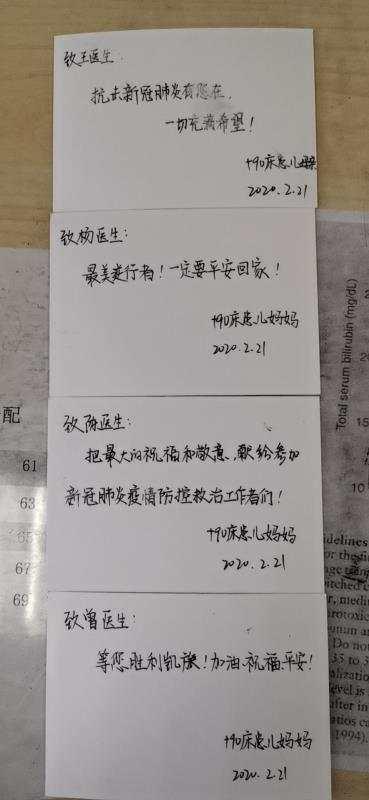 致王医生:
抗击新冠肺炎有您在,
一切充满希望!
+90床患儿妈妈
2020.2.21
致杨医生:
最美逆行者!一定要平安回家!
+90床患儿妈妈
2020.2.21
致陈医生:
把最大的祝福和敬意,献给参加
新冠肺炎疫情防控救治工作者们!
+90床患儿妈妈
2020.2.21
致曾医生:
等您胜利凯旋!加油.祝福.平安!
+90床患儿妈妈
2020.2.21
配
61
63
65
67
69
Total serum bilirubin (mg/dL)
15
10
idelines